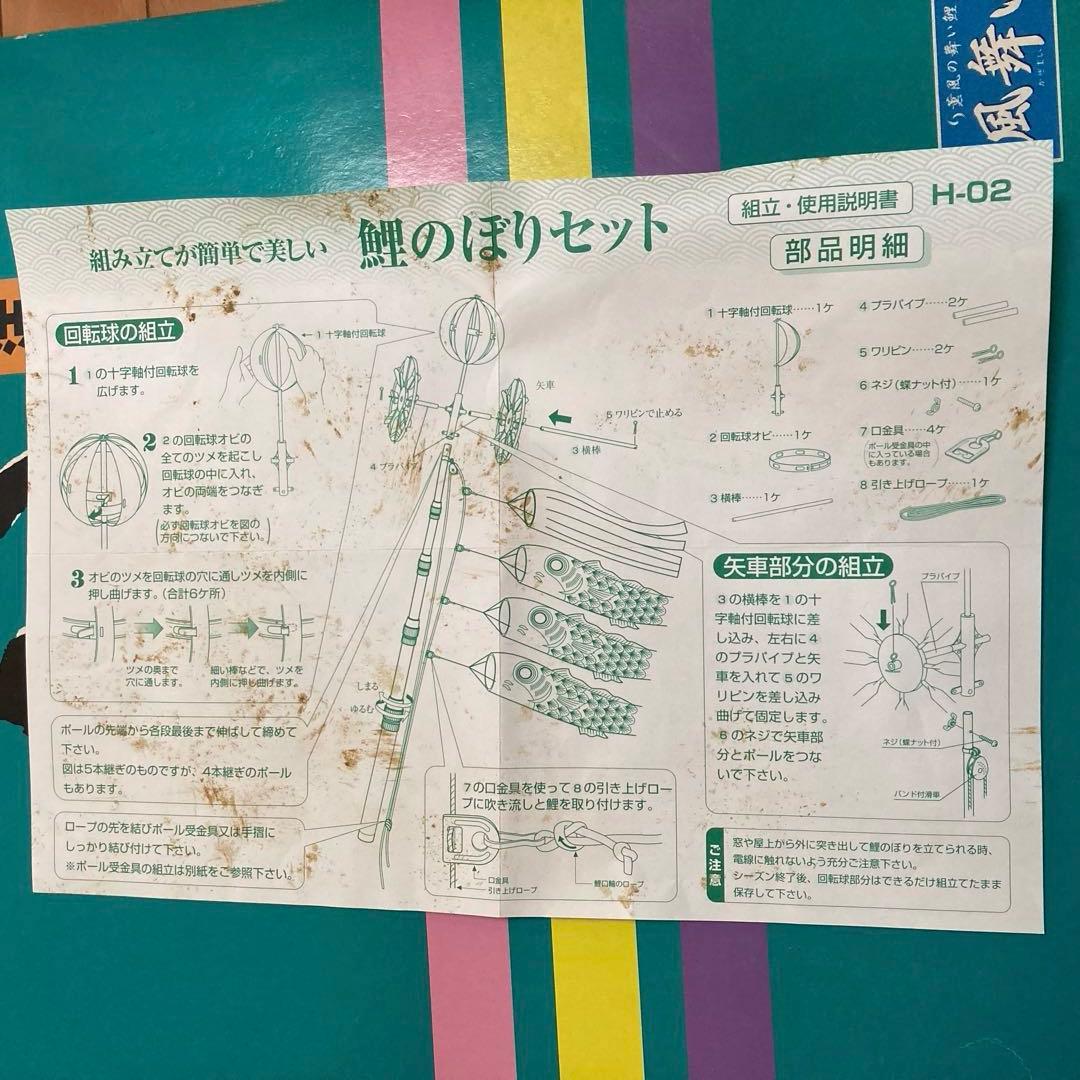 薫風の舞い鯉
風舞い
組み立てが簡単で美しい
鯉のぼりセット
組立・使用説明書
H-02
部品明細
回転球の組立
1 1の十字軸付回転球を
広げます。
1 十字軸付回転球
2 2の回転球オビの
全てのツメを起こし
回転球の中に入れ、
オビの両端をつなぎ
ます。
(必ず回転球オビを図の
方向につないで下さい。)
3 オビのツメを回転球の穴に通しツメを内側に
押し曲げます。(合計6ケ所)
ツメの奥まで
穴に通します。
細い棒などで、ツメを
内側に押し曲げます。
ポールの先端から各段最後まで伸ばして締めて
下さい。
図は5本継ぎのものですが、4本継ぎのポール
もあります。
ロープの先を結びポール受金具又は手摺に
しっかり結び付けて下さい。
※ポール受金具の組立は別紙をご参照下さい。
矢車
5 ワリピンで止める
3 横棒
4 プラパイプ
しまる
ゆるむ
7の口金具を使って8の引き上げロー
プに吹き流しと鯉を取り付けます。
口金具
引き上げロープ
鯉口輪のロープ
1 十字軸付回転球……1ケ
2 回転球オビ……1ケ
3 横棒……1ケ
4 プラパイプ……2ケ
5 ワリピン……2ケ
6 ネジ(蝶ナット付)……1ケ
7 口金具……4ケ
(ポール受金具の中
に入っている場合
もあります。)
8 引き上げロープ……1ケ
矢車部分の組立
3の横棒を1の十
字軸付回転球に差
し込み、左右に4
のプラパイプと矢
車を入れて5のワ
リピンを差し込み
曲げて固定します。
6のネジで矢車部
分とポールをつな
いで下さい。
プラパイプ
ネジ(蝶ナット付)
バンド付滑車
ご注意
窓や屋上から外に突き出して鯉のぼりを立てられる時、
電線に触れないよう充分ご注意下さい。
シーズン終了後、回転球部分はできるだけ組立てたまま
保存して下さい。